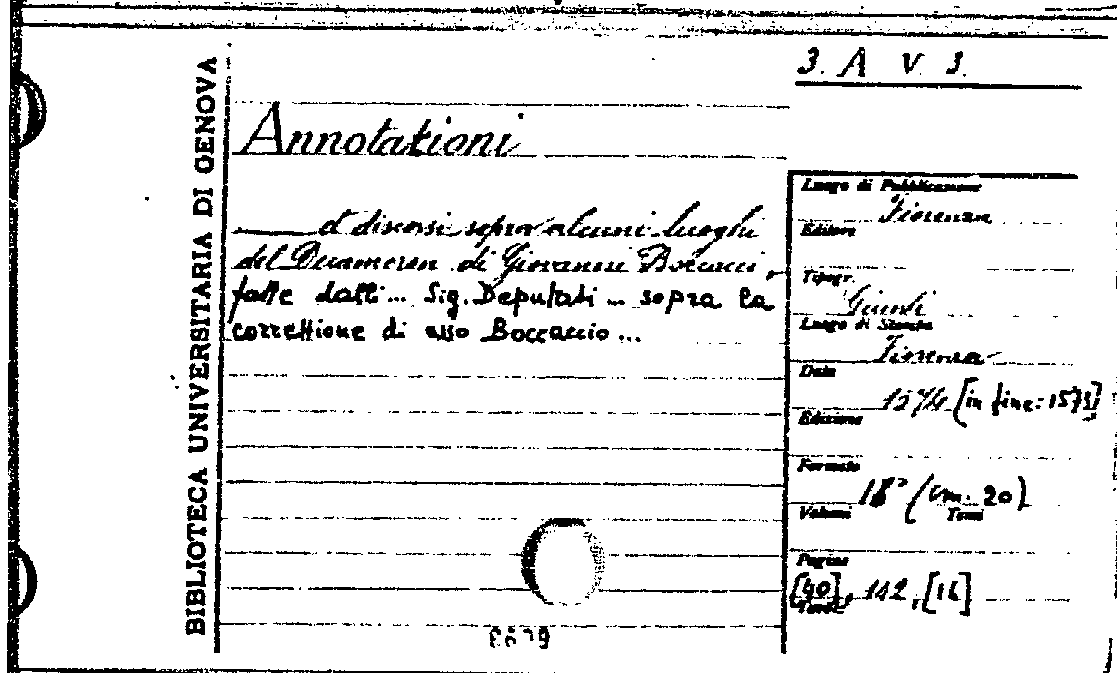 BIBLIOTECA UNIVERSITARIA DI GENOVA
3. A V 3.
Annotationi
et discorsi sopra alcuni luoghi
del Decameron di Giovanni Boccacci,
fatte dalli... Sig. Deputati... sopra la
correttione di esso Boccaccio...
Luogo di Pubblicazione
Fiorenza
Editore
Tipogr.
Giunti
Luogo di Stampa
Fiorenza
Data
1574 [in fine: 1573]
Edizione
Formato
(cm. 20)
Volumi Tomi
Pagine
[40], 142, [16]
Tavol.